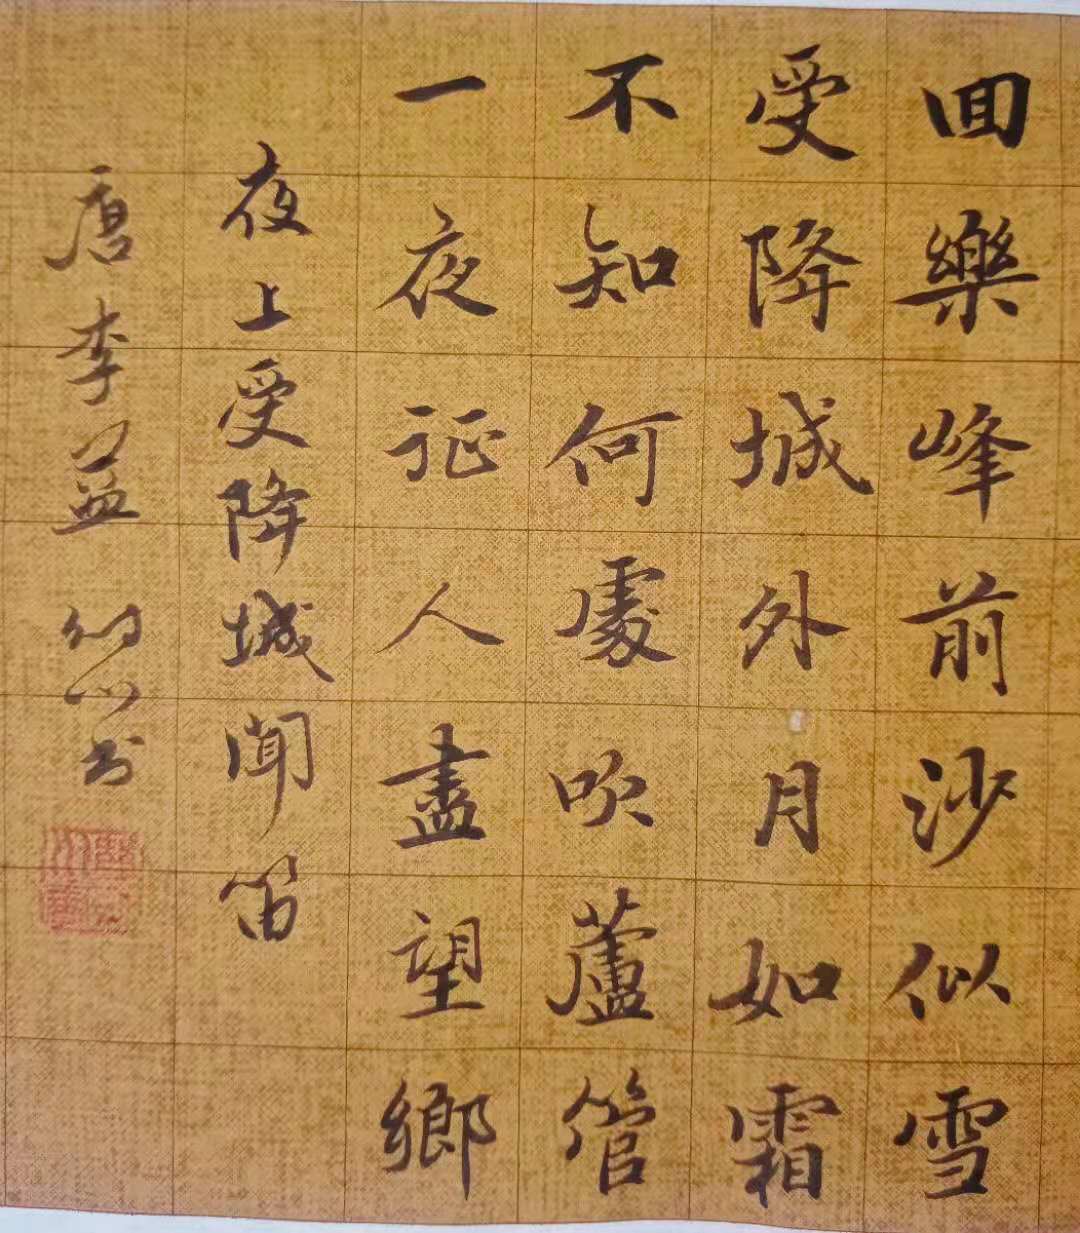 回樂峰前沙似雪
受降城外月如霜
不知何處吹蘆管
一夜征人盡望鄉
夜上受降城聞笛
唐李益